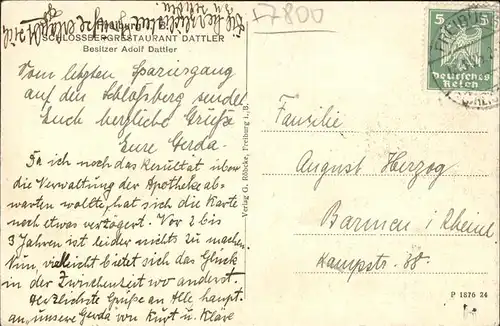 7800
SCHLOSSBERGRESTAURANT DATTLER
Besitzer Adolf Dattler
Vom letzten Spaziergang
auf den Schloßberg sendet
Euch herzliche Grüße
Eure Gerda.
Da ich noch das Resultat über
die Verwaltung der Apotheke ab-
warten wollte, hat sich die Karte
noch etwas verzögert. Vor 2 bis
3 Jahren ist leider nichts zu machen.
Nun, vielleicht bietet sich das Glück
in der Zwischenzeit wo anderst.
Herzlichste Grüße an Alle, haupt.
an unsere Gerda von Kurt u. Kläre
Verlag G. Röbcke, Freiburg i. B.
5 5
Deutsches
Reich
Familie
August Herzog
Barmen i/Rheinl
Kampstr. 88
P 1876 24